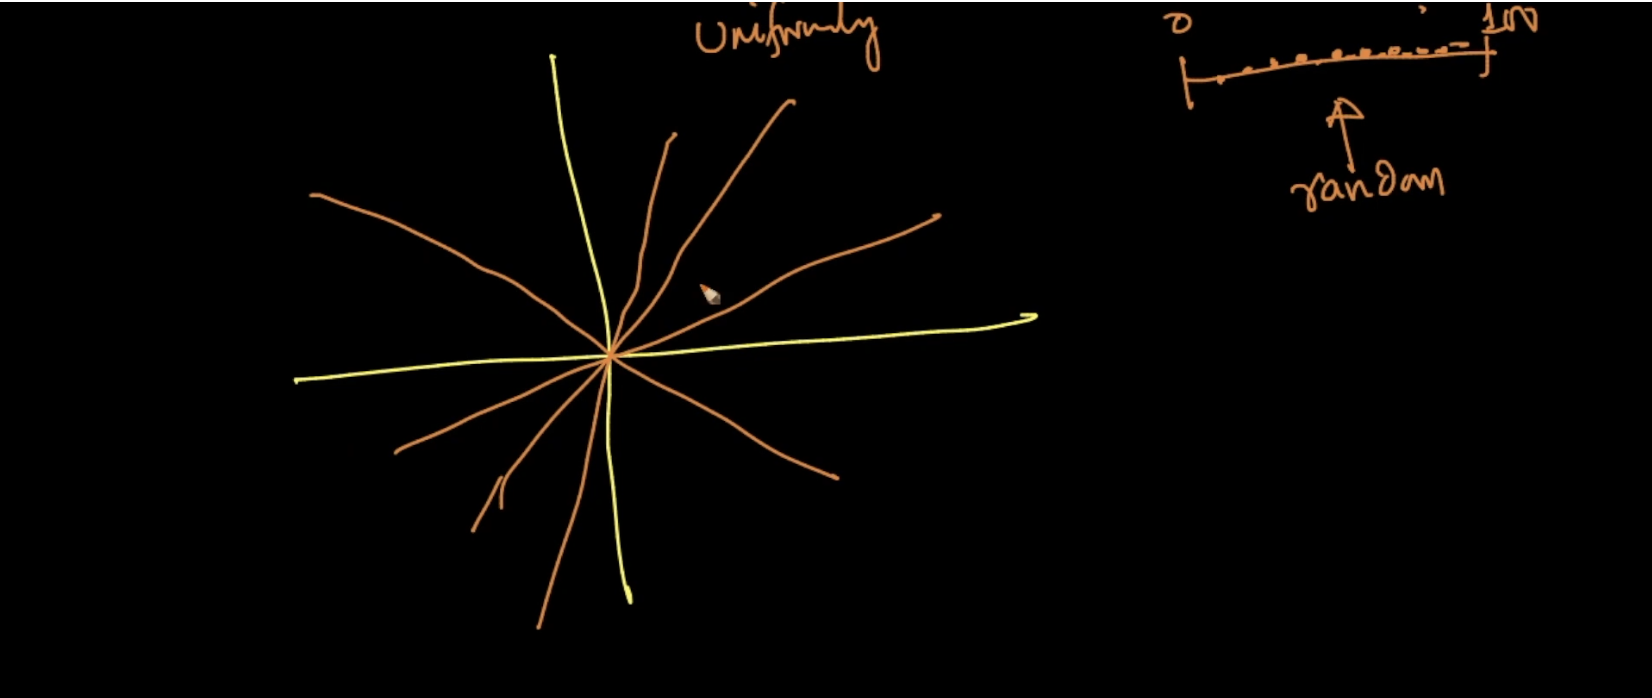 Uniformly
0 100
random